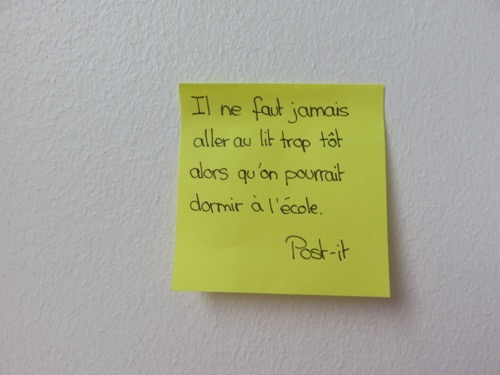 Il ne faut jamais
aller au lit trop tôt
alors qu'on pourrait
dormir à l'école.
Post-it